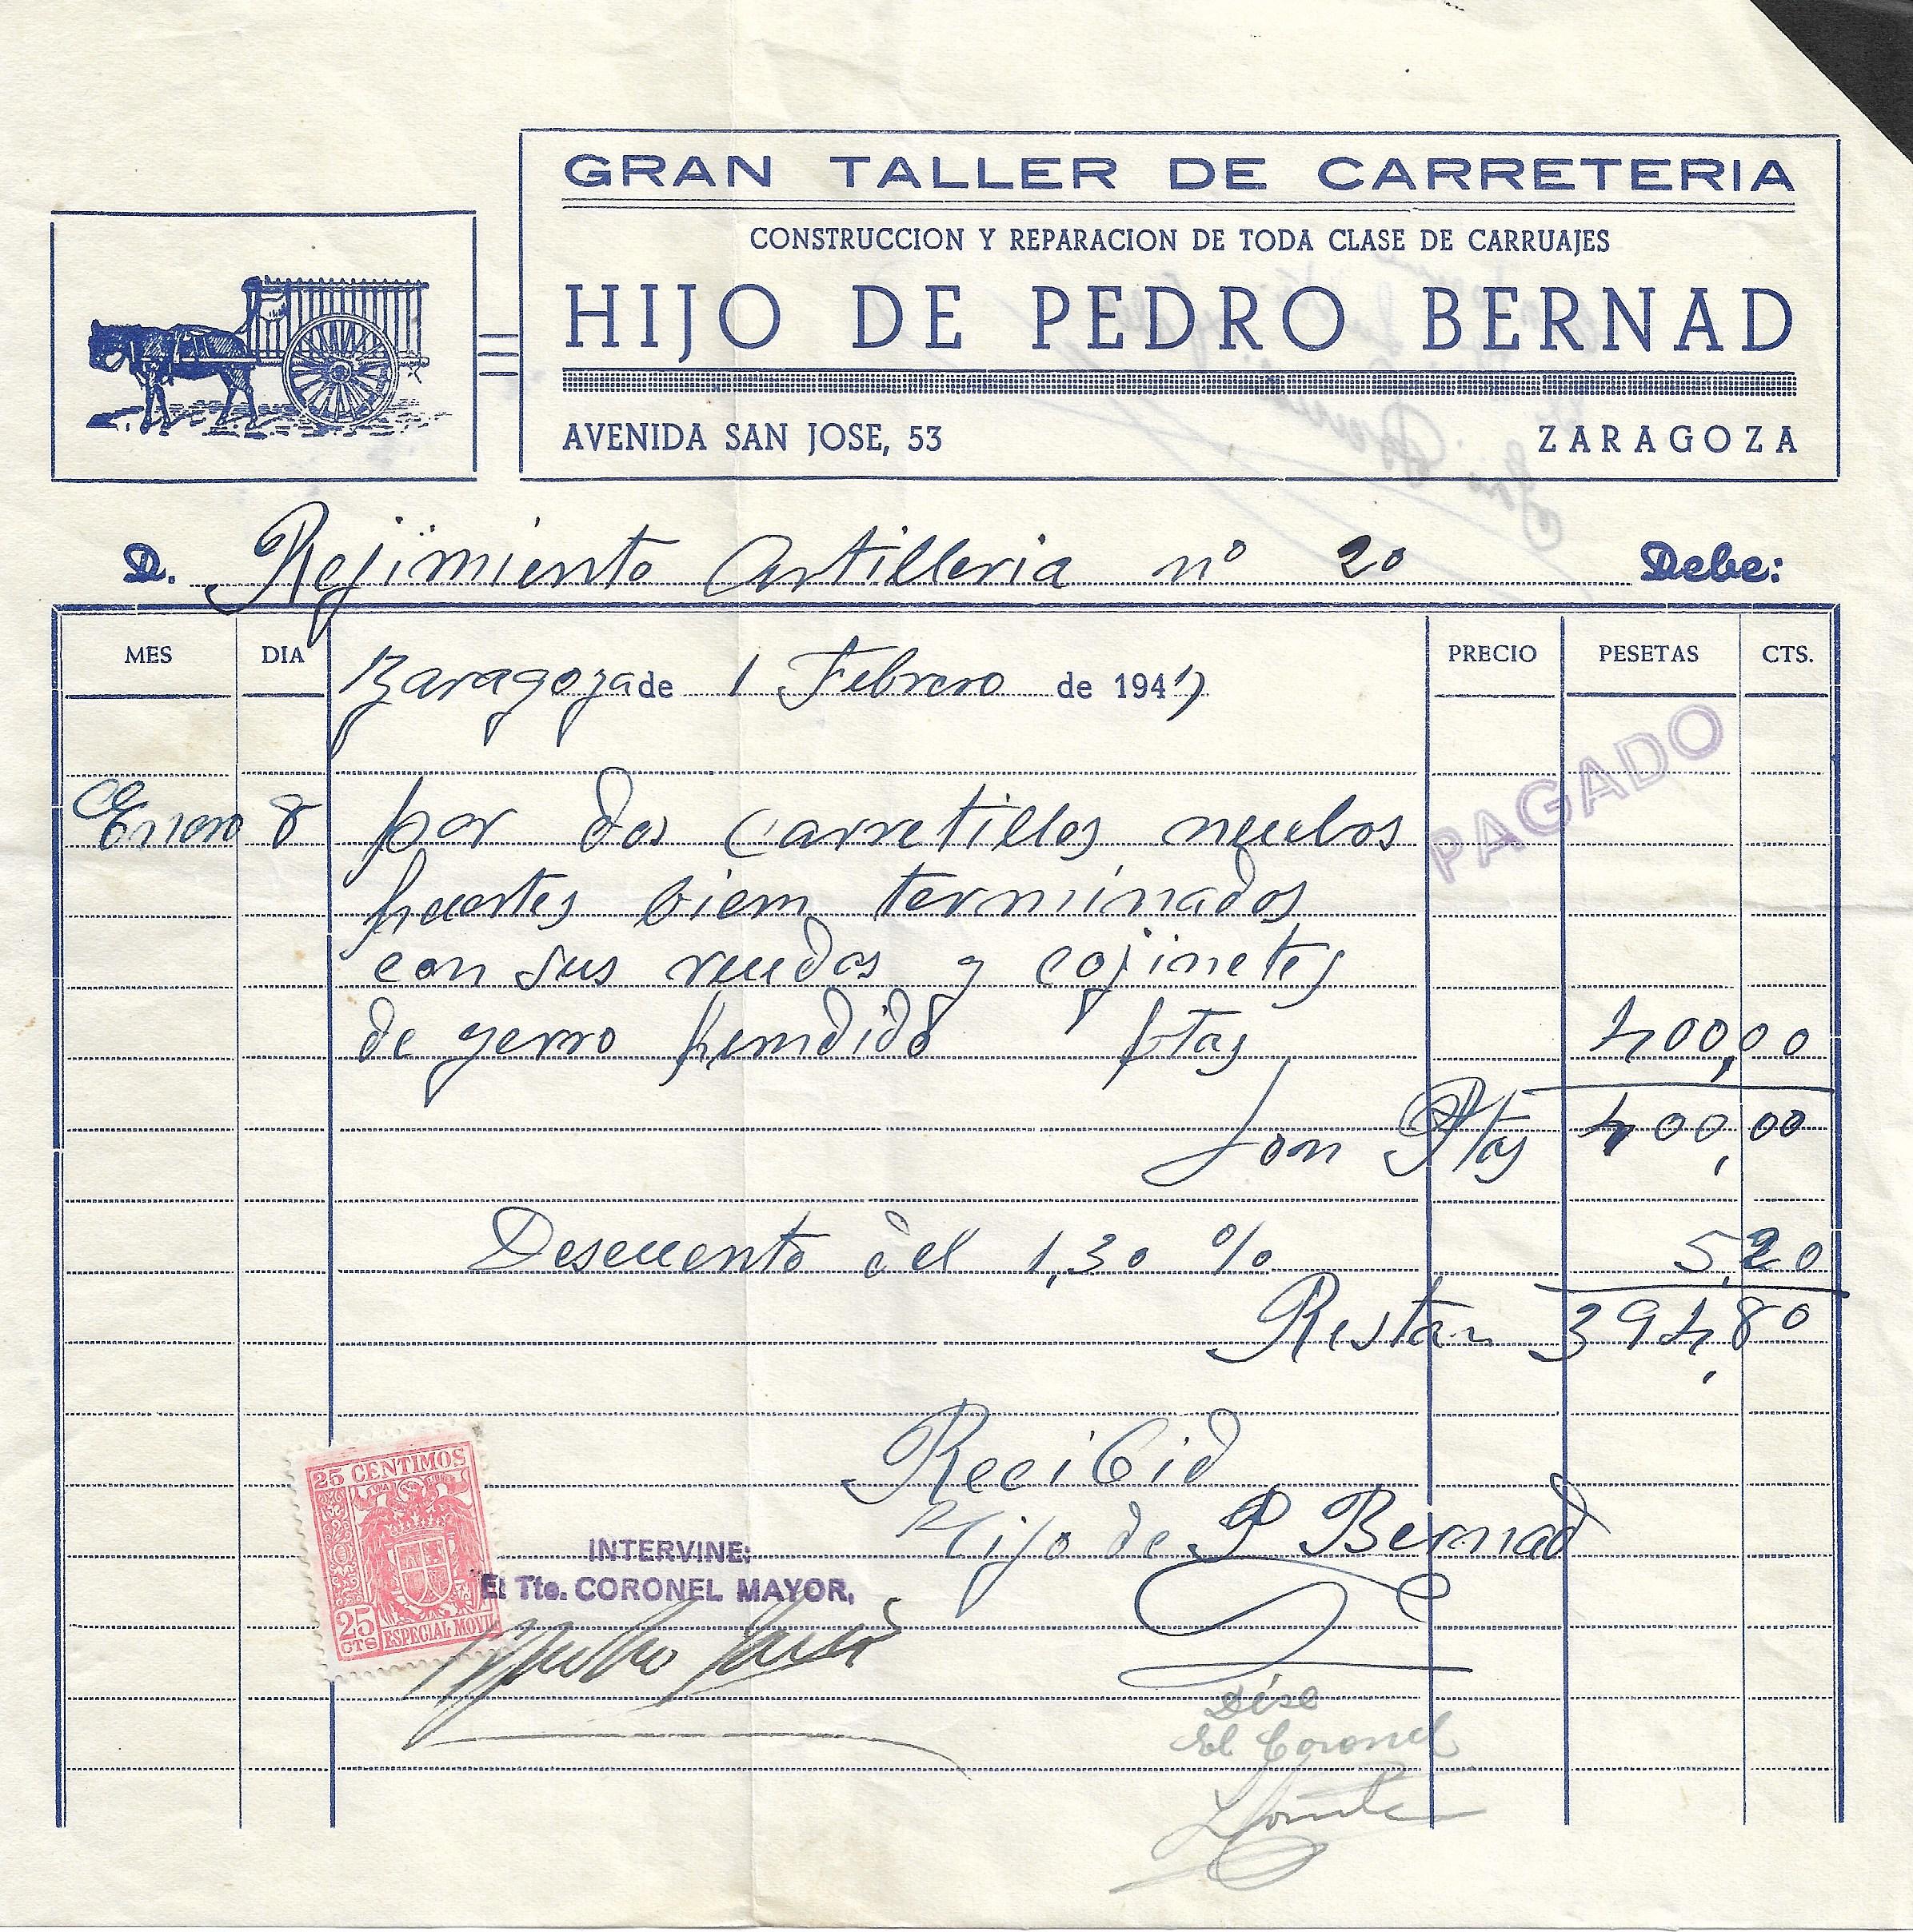 GRAN TALLER DE CARRETERIA
CONSTRUCCION Y REPARACION DE TODA CLASE DE CARRUAJES
HIJO DE PEDRO BERNAD
AVENIDA SAN JOSE, 53 ZARAGOZA
D. Rejimiento Artilleria nº 20 Debe:
MES DIA Zaragoza de 1 Febrero de 1947 PRECIO PESETAS CTS.
PAGADO
Enero 8 por dos carretillos nuebos
fuertes biem terminados
con sus ruedas y cojinetes
de yerro fundido ptas 400,00
Son Ptas 400,00
Descuento del 1,30 % 5,20
Restan 394,80
Recibid
Hijo de P Bernad
25 CENTIMOS
25 CTS ESPECIAL MOVIL
INTERVINE:
El Tte. CORONEL MAYOR,
Dése
El Coronel